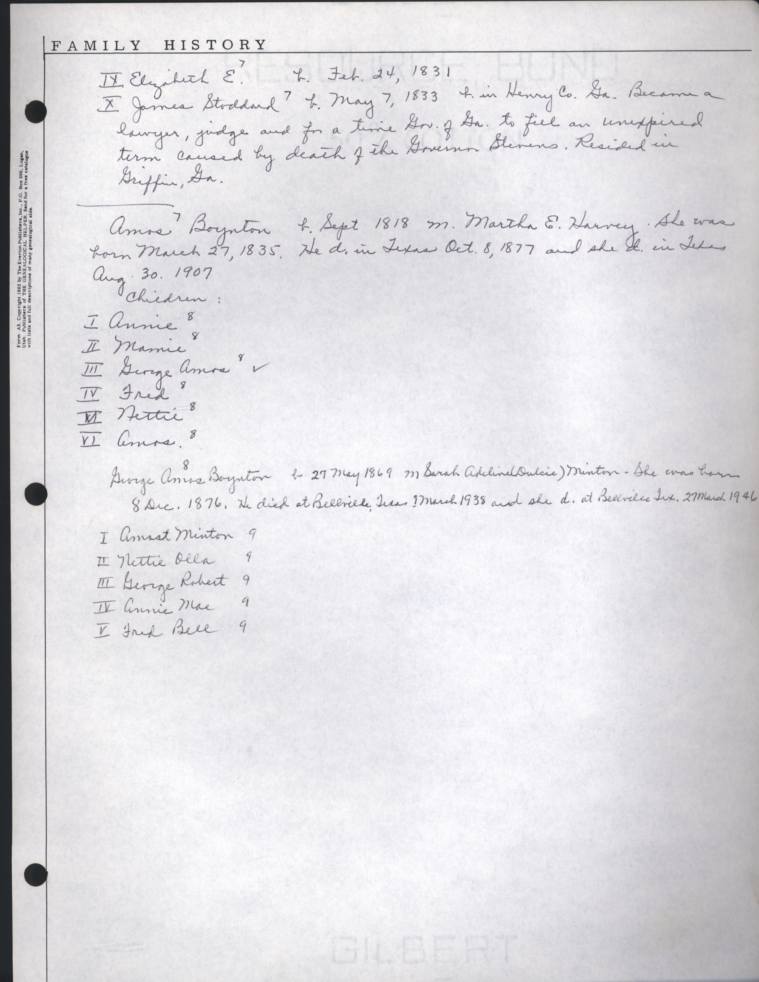 FAMILY HISTORY
RESOURCE BOND
IX Elizabeth E.⁷ b. Feb. 24, 1831
X James Stoddard⁷ b. May 7, 1833 b. in Henry Co. Ga. Became a
lawyer, judge and for a time Gov. of Ga. to fill an unexpired
term caused by death of the Governor Stevens. Resided in
Griffin, Ga.
Amos⁷ Boynton b. Sept 1818 m. Martha E. Harvey. She was
born March 27, 1835. He d. in Texas Oct. 8, 1877 and she d. in Texas
Aug. 30. 1907
Children :
I Annie⁸
II Mamie⁸
III George Amos⁸ ✓
IV Fred⁸
V Nettie⁸
VI Amos.⁸
George Amos⁸ Boynton b 27 May 1869 m Sarah Adeline(Dulcie) Minton - She was born
8 Dec. 1876. He died at Bellville, Texas March 1938 and she d. at Bellville Tex. 27 March 1946
I Amost Minton 9
II Nettie Olla 9
III George Robert 9
IV Annie Mae 9
V Fred Bell 9
Form A2. Copyright 1962 by The Everton Publishers, Inc., P.O. Box 368, Logan,
Utah. Publishers of THE GENEALOGICAL HELPER. Send for a free catalogue
with lists and full descriptions of many genealogical aids.
GILBERT